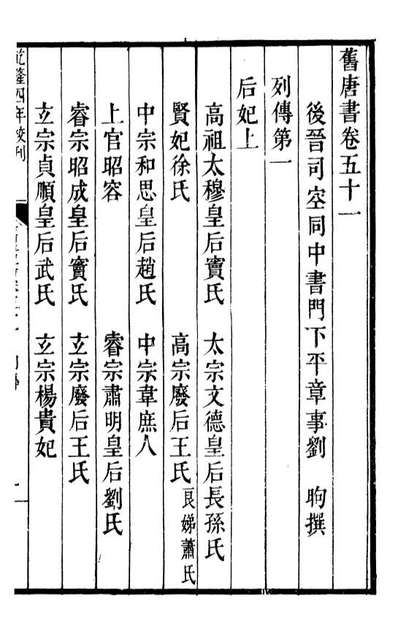 舊唐書卷五十一
後晉司空同中書門下平章事劉昫撰
列傳第一
后妃上
高祖太穆皇后竇氏 太宗文德皇后長孫氏
賢妃徐氏 高宗廢后王氏良娣蕭氏
中宗和思皇后趙氏 中宗韋庶人
上官昭容 睿宗肅明皇后劉氏
睿宗昭成皇后竇氏 玄宗廢后王氏
玄宗貞順皇后武氏 玄宗楊貴妃
乾隆四年校刊